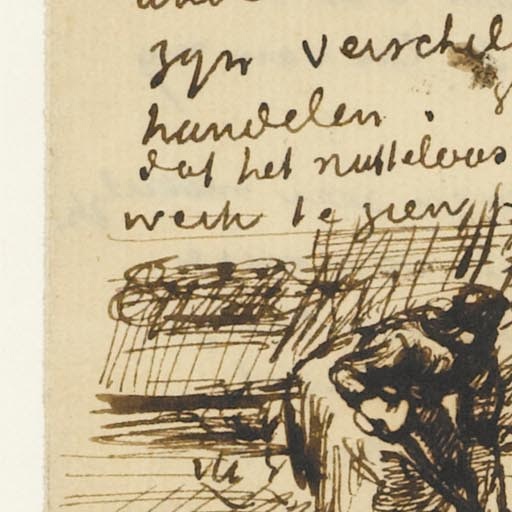 zijn verschil
handelen.
dat het nutteloos
werk te zien